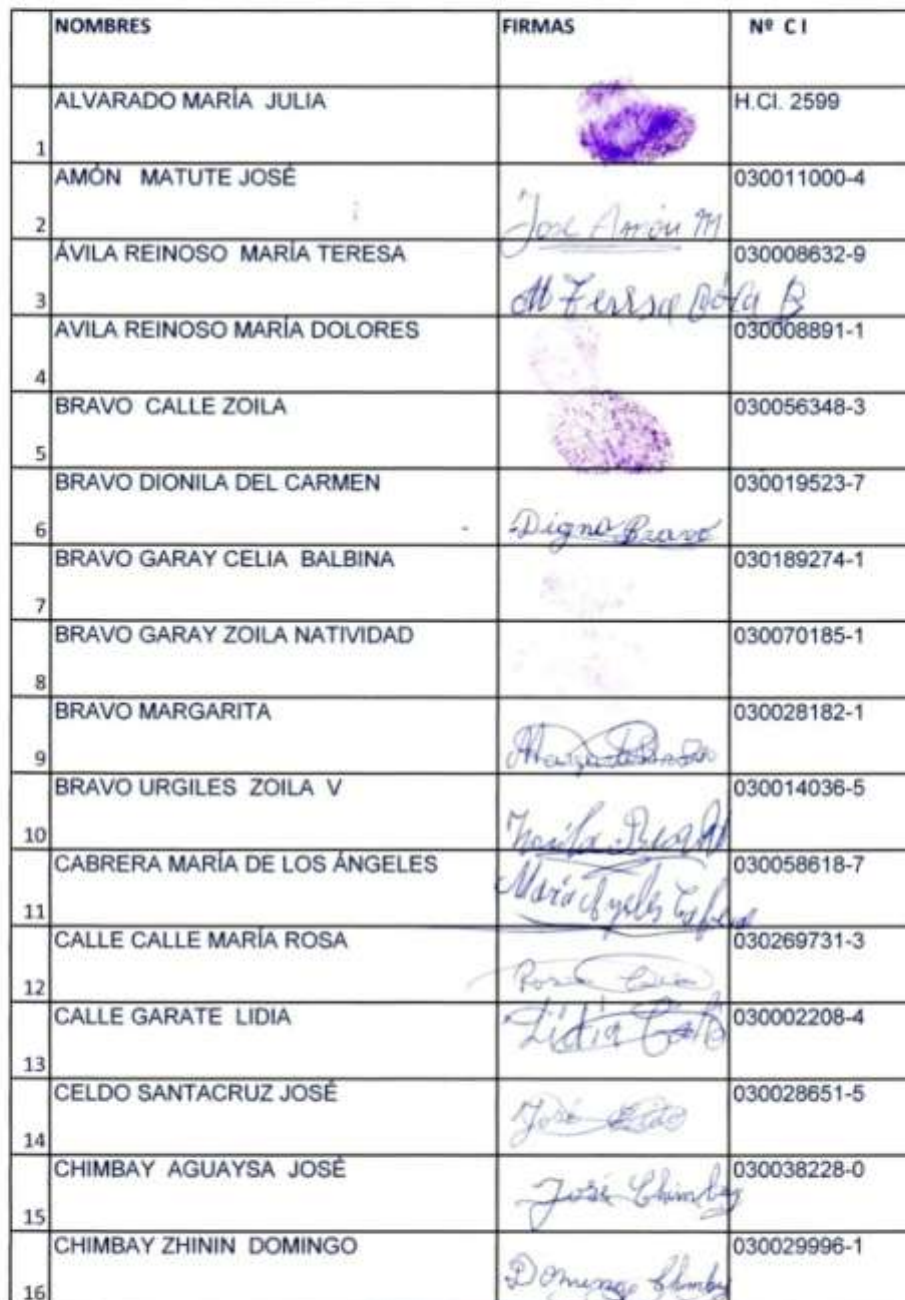 NOMBRES FIRMAS Nº C I
1 ALVARADO MARÍA JULIA H.Cl. 2599
2 AMÓN MATUTE JOSÉ José Amón M 030011000-4
3 ÁVILA REINOSO MARÍA TERESA M Teresa 030008632-9
4 AVILA REINOSO MARÍA DOLORES 030008891-1
5 BRAVO CALLE ZOILA 030056348-3
6 BRAVO DIONILA DEL CARMEN Digna Bravo 030019523-7
7 BRAVO GARAY CELIA BALBINA 030189274-1
8 BRAVO GARAY ZOILA NATIVIDAD 030070185-1
9 BRAVO MARGARITA 030028182-1
10 BRAVO URGILES ZOILA V 030014036-5
11 CABRERA MARÍA DE LOS ÁNGELES 030058618-7
12 CALLE CALLE MARÍA ROSA Rosa 030269731-3
13 CALLE GARATE LIDIA Lidia 030002208-4
14 CELDO SANTACRUZ JOSÉ José 030028651-5
15 CHIMBAY AGUAYSA JOSÉ José Chimbay 030038228-0
16 CHIMBAY ZHININ DOMINGO Domingo Chimbay 030029996-1